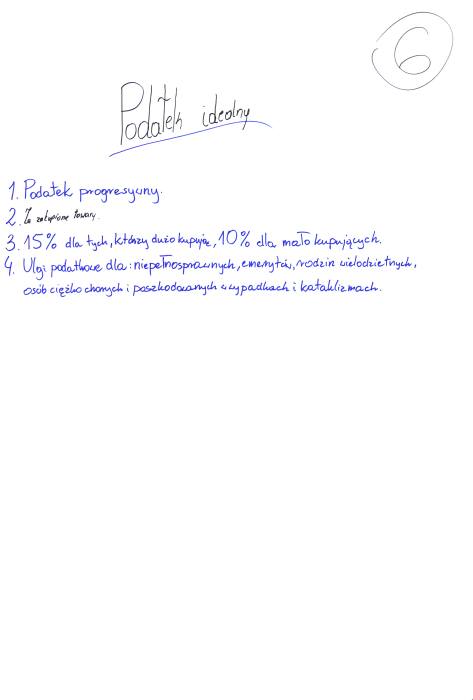 6
Podatek idealny
1. Podatek progresywny.
2. Za zakupione towary.
3. 15% dla tych, którzy dużo kupują, 10% dla mało kupujących.
4. Ulgi podatkowe dla: niepełnosprawnych, emerytów, rodzin wielodzietnych,
osób ciężko chorych i poszkodowanych w wypadkach i kataklizmach.